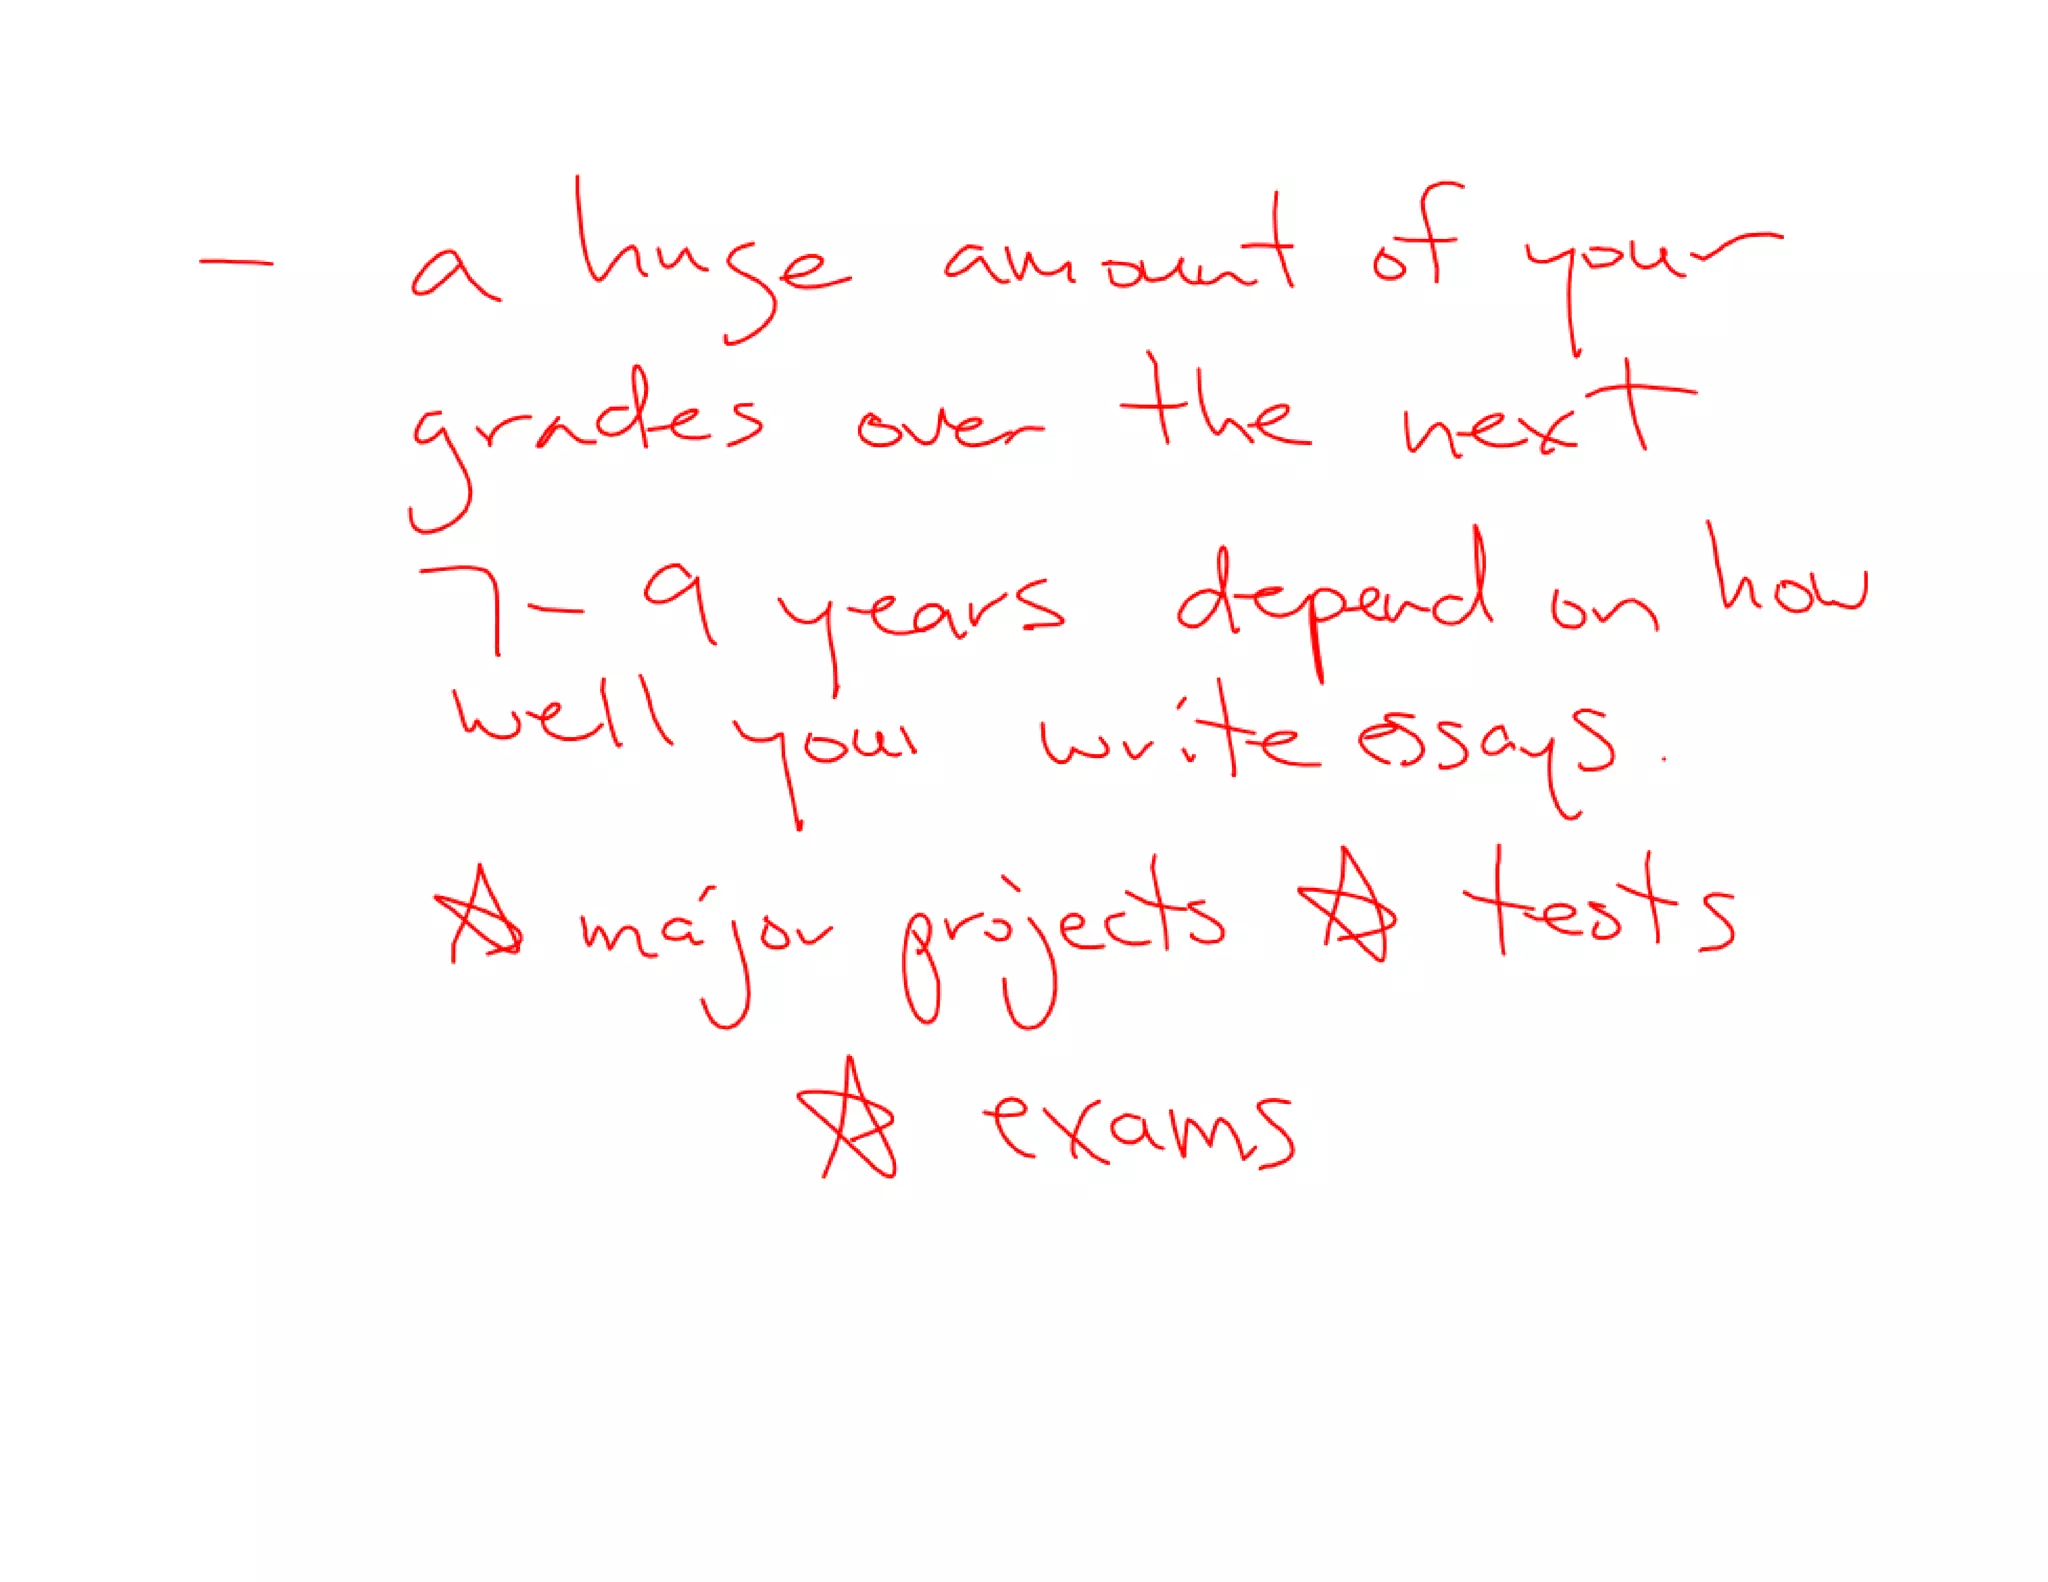 - a huge amount of your
grades over the next
7-9 years depend on how
well you write essays.
☆ major projects ☆ tests
☆ exams